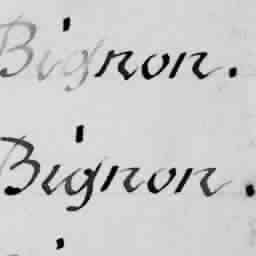 Bignon.
Bignon.